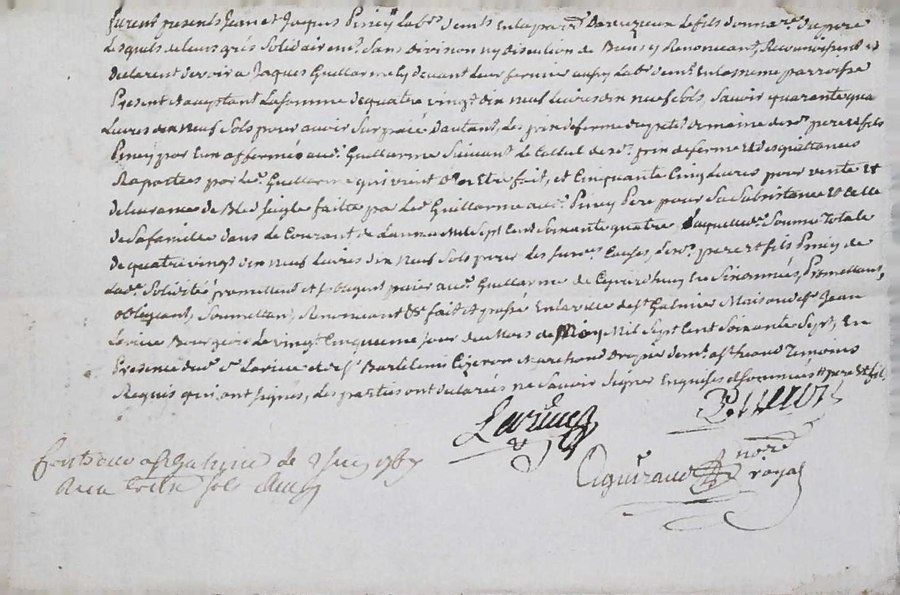 furent presents Jean et Jaques Piney Lab.rs dem.ts En la par.sse De le fils donna.re du pere
Lesquels de leurs grés Solidairem.t Sans Division ny discution de Biens y Renonceant, Reconnoissent et
declarent devoir a Jaques Guillarme Cy devant leur fermier aussy Lab.r dem.t En la meme parroisse
Present et acceptant La somme de quatre vingt dix neuf Livres dix neuf sols, Savoir quarante qua
Livres dix neuf Sols pour avoir Sur paié d'autant, Les prix de ferme du domaine des.ts pere et fils
Piney par Eux affermés aud. Guillarme Suivant le Calcul des.ts prix de ferme et des quittances
Raportées par led. Guillarme qui vient d'en Etre fait, et Cinquante Cinq Livres pour vente et
delivrance de Bled Seigle faitte par led. Guillarme aud. Piney Pere pour Sa Subsistance Et Celle
de Sa famille dans le Courant de L'année Mil Sept Cent Soixante quatre Laquelle d. Somme Totale
de quatre vingt dix neuf Livres dix neuf Sols pour les sus.es Causes, lesd. pere et fils Piney de
Lad. Solidité, promettent et s'obligent paier aud. Guillarme de Promettant,
obligeant, Soumettant, Renonceant &c fait et passé En la ville de S.t Galmier Maison de S.r Jean
Lerieux Bourgeois Le vingt Cinquieme jour du Mois de May Mil Sept Cent Soixante Sept, En
Presence dud. S.r Lerieux et de S.r Bartelemi Cizeron Marchand Drapier dem.t aud. lieux Temoins
Requis qui ont signés, des parties ont declarés ne Savoir Signer Enquises et Sommées pere et fils
Lerieux
not.re
royal
Controllé a S.t Galmier le 2 Juin 1767
Reçu treize sols